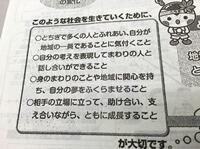 の変化
このような社会を生きていくために、
○とちぎで多くの人とふれあい、自分が
地域の一員であることに気付くこと
○自分の考えを表現してまわりの人と
話し合いができること
○身のまわりのことや地域に関心を持
ち、自分の夢をふくらませること
○相手の立場に立って、助け合い、支
え合いながら、ともに成長すること
が大切です。
地
変